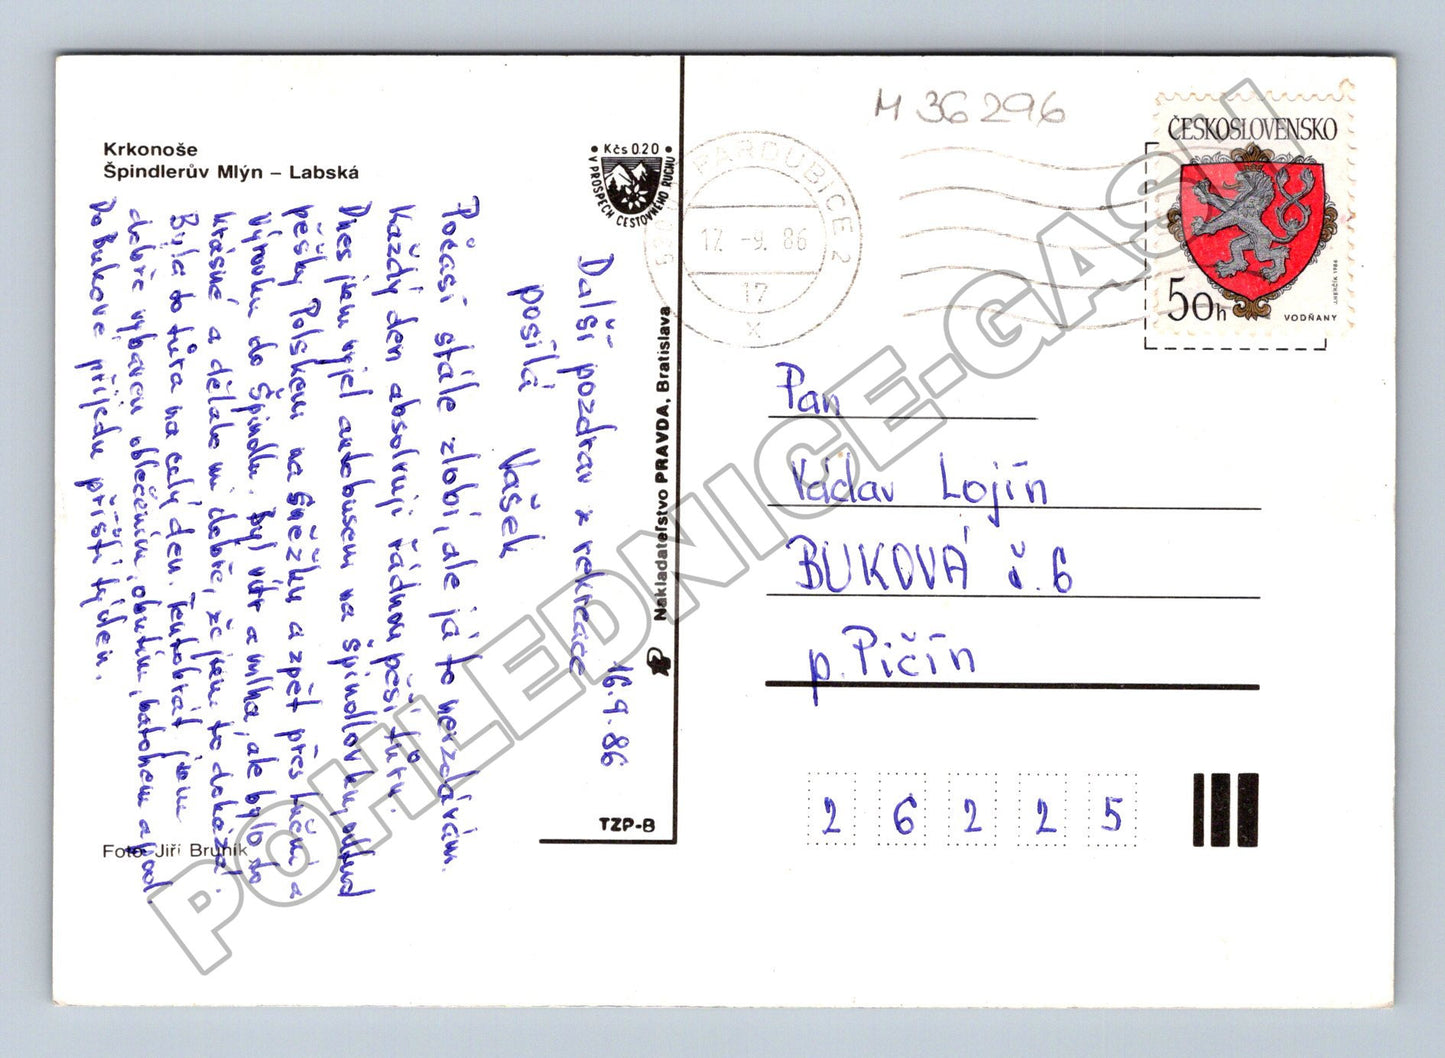 Krkonoše
Špindlerův Mlýn – Labská
• Kčs 0.20 •
V PROSPĚCH CESTOVNÍHO RUCHU
16.9.86
Další pozdrav z rekreace
posílá Vašek
Počasí stále zlobí, ale já to nevzdávám.
Každý den absolvuji řádnou pěší túru.
Dnes jsem vyjel autobusem na Špindlovku, odtud
pěšky Polskem na Sněžku a zpět přes Luční a
Výrovku do Špindlu. Byl vítr a mlha, ale bylo to
krásné a dělalo mi dobře, že jsem to dokázal.
Byla to túra na celý den. Tentokrát jsem
dobře vybaven oblečením, obutím, batohem a pod.
Do Bukové přijedu příští týden.
Foto Jiří Bruník
Nakladateľstvo PRAVDA, Bratislava
TZP-B
M 36296
PARDUBICE 2
17.-9.86
17
x
ČESKOSLOVENSKO
50h
VODŇANY
J.HERČÍK 1986
Pan
Václav Lojín
BUKOVÁ č.6
p. Pičín
26225
POHLEDNICE-GASH